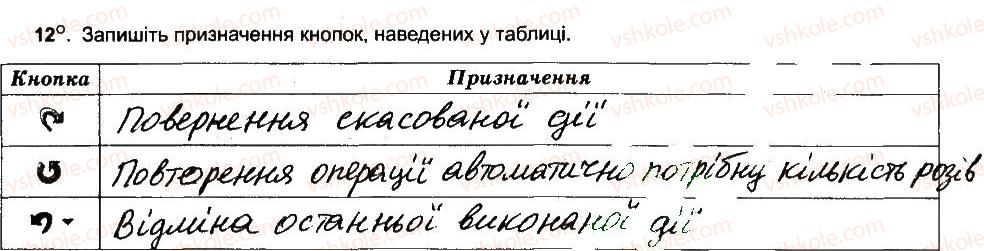 12°. Запишіть призначення кнопок, наведених у таблиці.
Кнопка Призначення
Повернення скасованої дії
Повторення операції автоматично потрібну кількість розів
Відміна останньої виконаної дії